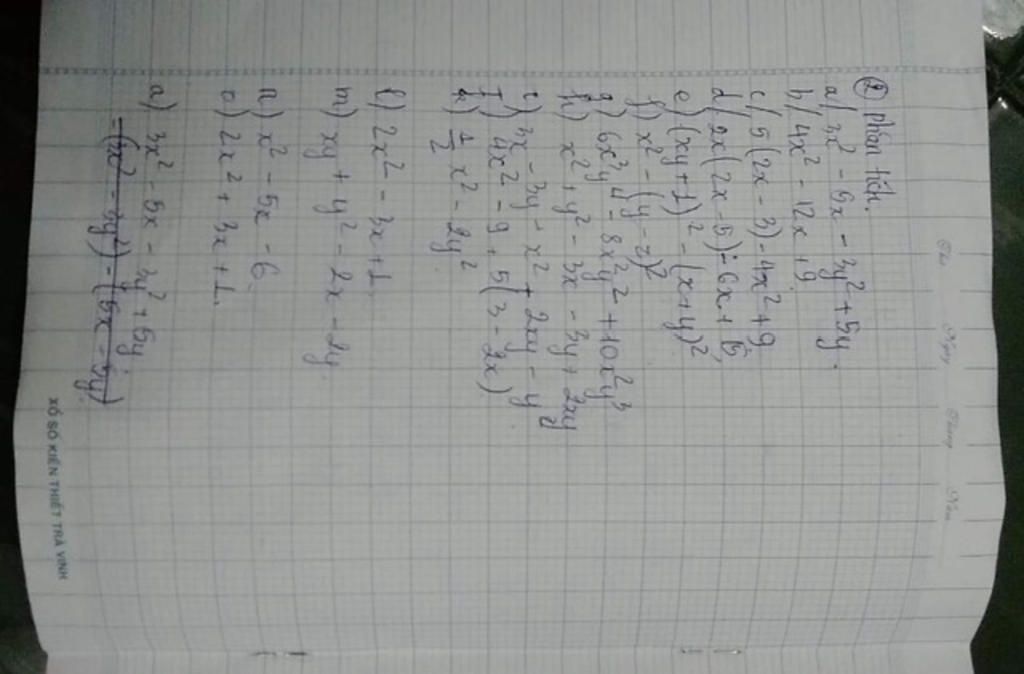 Thứ Ngày Tháng Năm
② phân tích.
a/ 3x² - 5x - 3y² + 5y.
b/ 4x² - 12x + 9
c/ 5(2x - 3) - 4x² + 9
d/ 2x(2x - 5) - 6x + 15
e) (xy + 1)² - (x + y)²
f) x² - (y - z)²
g) 6x³y⁴ - 8x²y² + 10x²y³
h) x² + y² - 3x - 3y + 2xy
i) 3x - 3y - x² + 2xy - y²
j) 4x² - 9 + 5(3 - 2x)
k) 1/2 x² - 2y²
l) 2x² - 3x + 1.
m) xy + y² - 2x - 2y.
n) x² - 5x - 6.
o) 2x² + 3x + 1.
a) 3x² - 5x - 3y² + 5y.
= (3x² - 3y²) - (5x - 5y)
XỔ SỐ KIẾN THIẾT TRÀ VINH